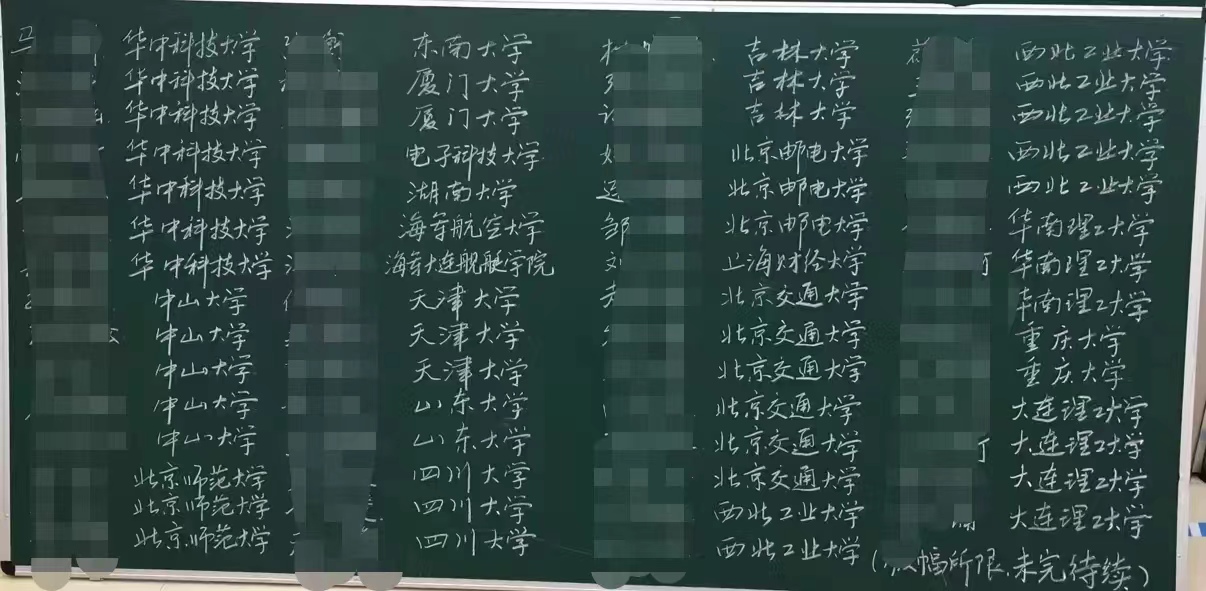 华中科技大学
华中科技大学
华中科技大学
华中科技大学
华中科技大学
华中科技大学
华中科技大学
中山大学
中山大学
中山大学
中山大学
中山大学
北京师范大学
北京师范大学
北京师范大学
东南大学
厦门大学
厦门大学
电子科技大学
湖南大学
海军航空大学
海军大连舰艇学院
天津大学
天津大学
天津大学
山东大学
山东大学
四川大学
四川大学
四川大学
吉林大学
吉林大学
吉林大学
北京邮电大学
北京邮电大学
邹 北京邮电大学
刘 上海财经大学
北京交通大学
北京交通大学
北京交通大学
北京交通大学
北京交通大学
北京交通大学
西北工业大学
西北工业大学
西北工业大学
西北工业大学
西北工业大学
西北工业大学
西北工业大学
华南理工大学
华南理工大学
华南理工大学
重庆大学
重庆大学
大连理工大学
大连理工大学
大连理工大学
大连理工大学
幅所限,未完待续)